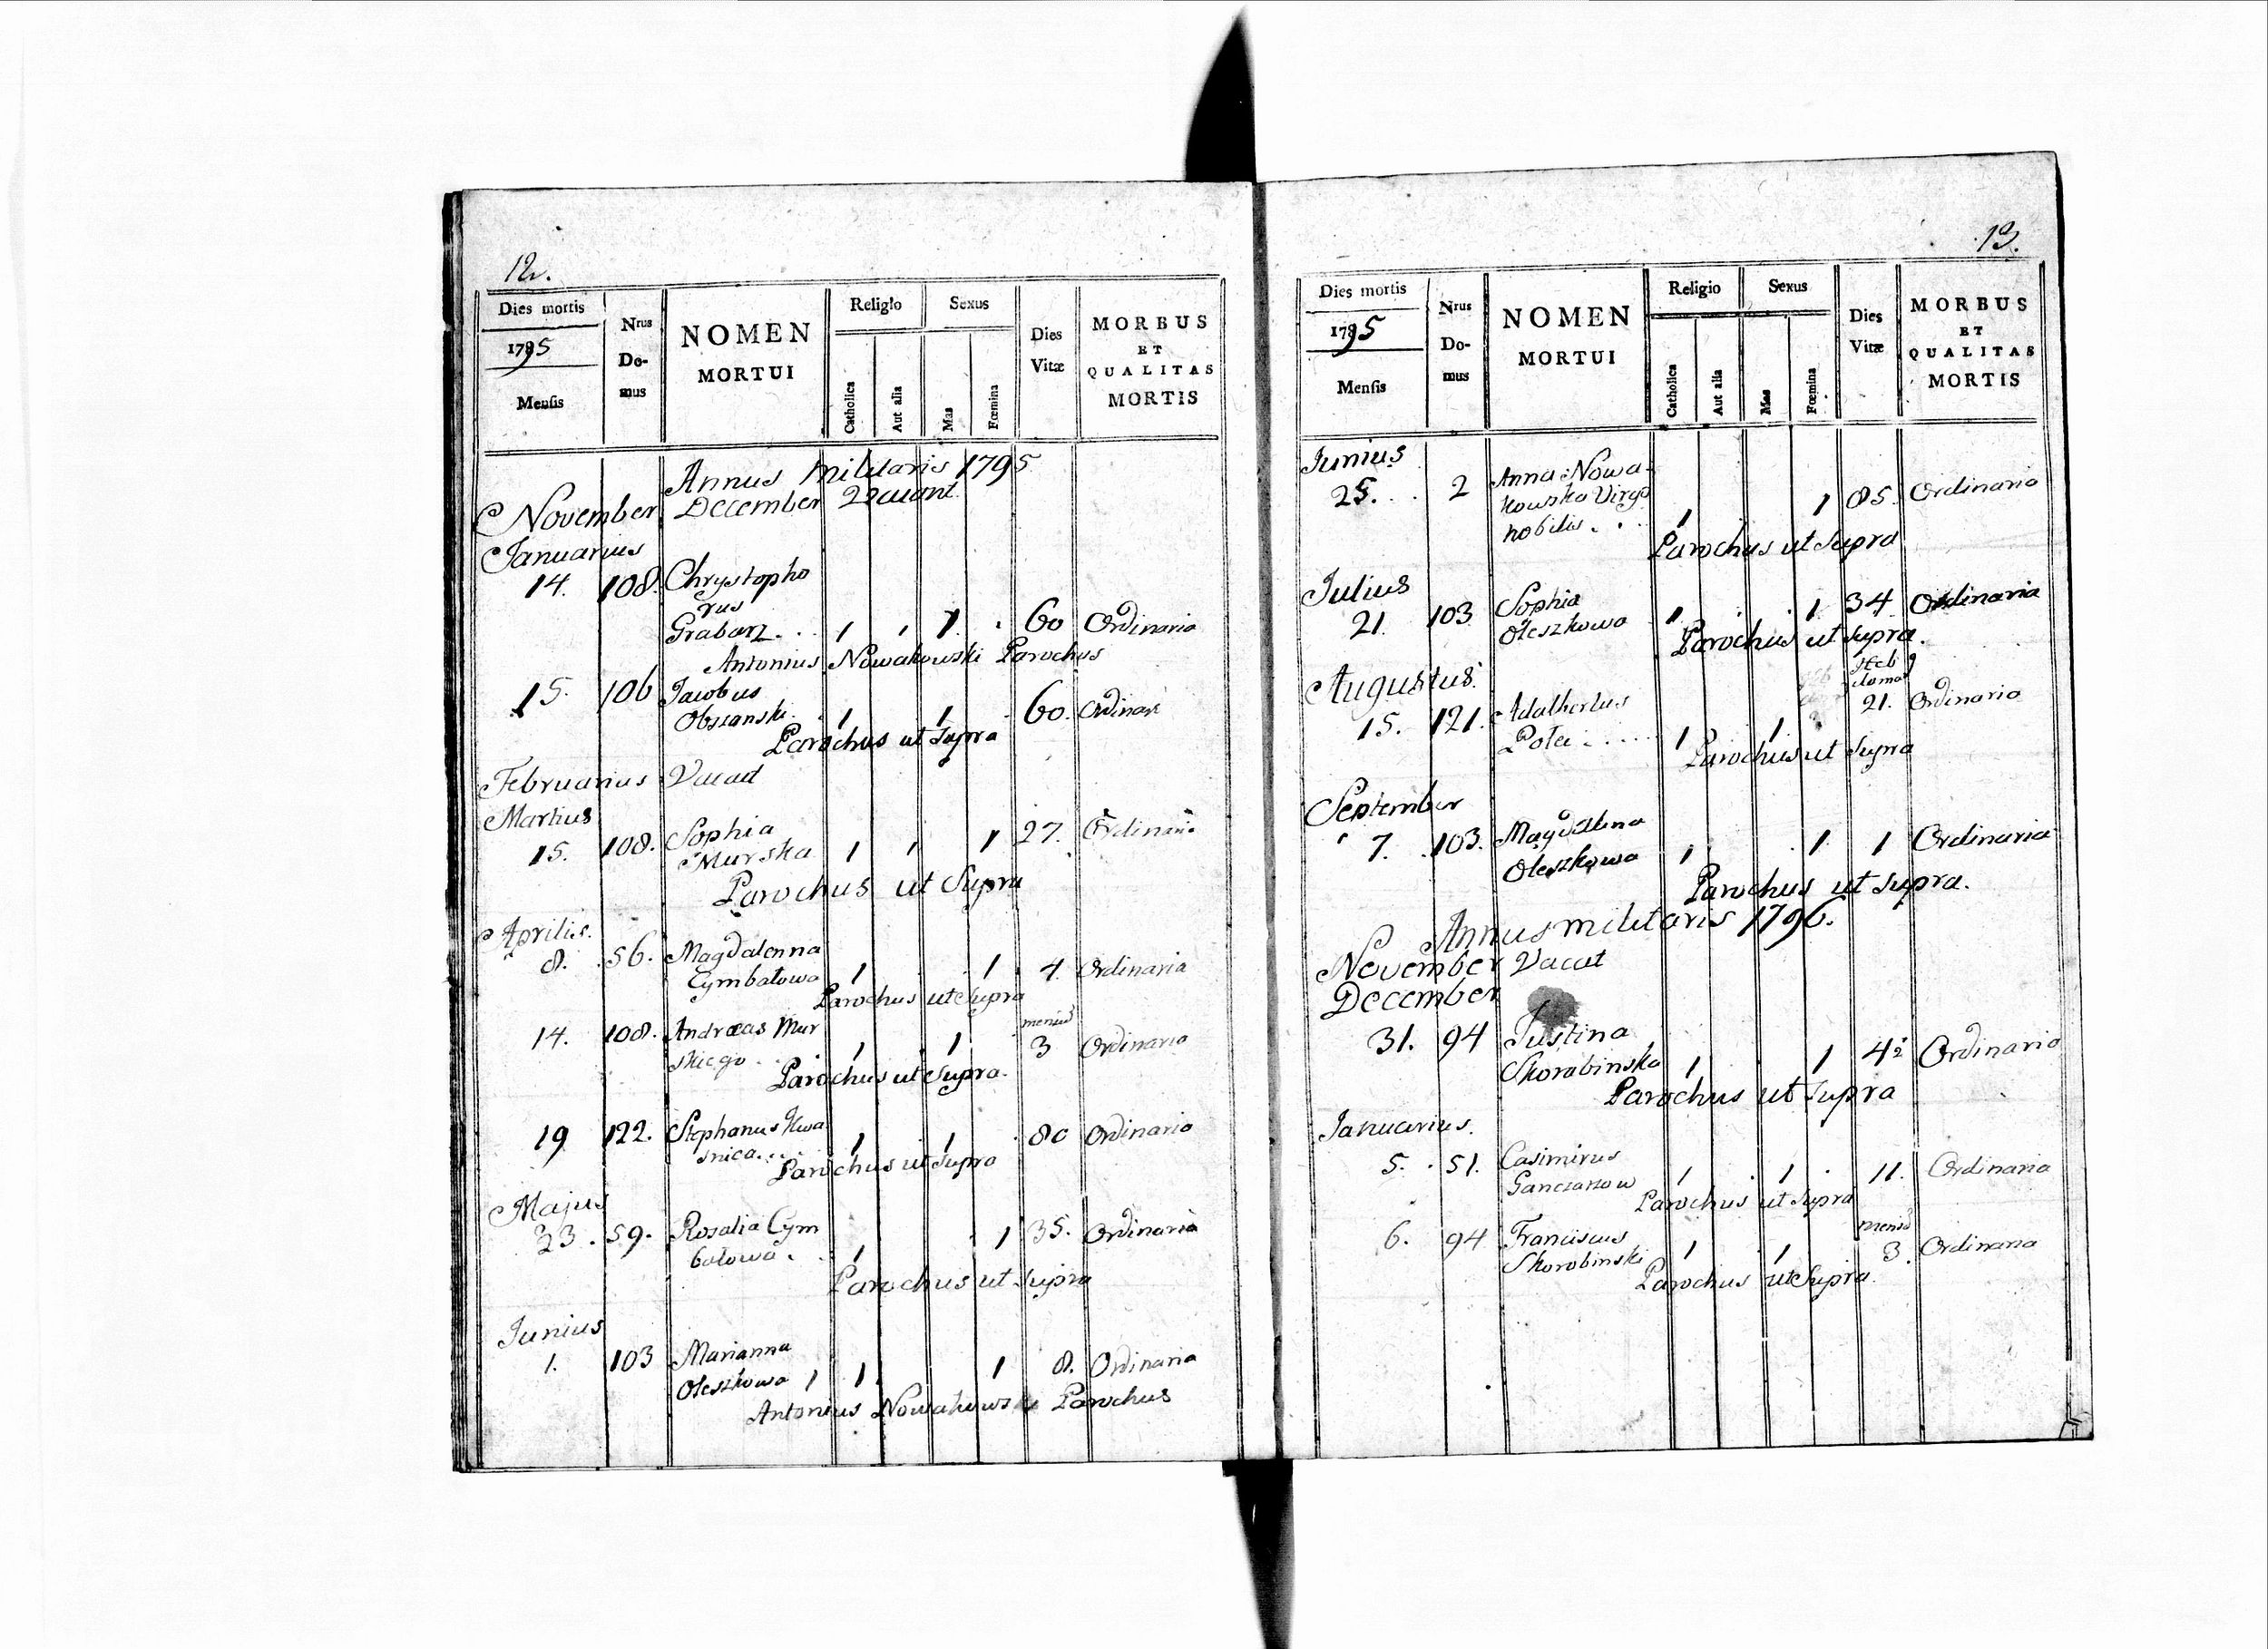 12.
Dies mortis
1795
Mensis
Nrus
Do-
mus
NOMEN
MORTUI
Religio
Catholica
Aut alia
Sexus
Mas
Fœmina
Dies
Vitæ
MORBUS
ET
QUALITAS
MORTIS
Annus militaris 1795
November December Vacant
Januarius
14. 108. Chrystopho
rus
Grabarz 1 1 60 Ordinaria
Antonius Nowakowski Parochus
15. 106 Jacobus
Obszanski 1 1 60. Ordinari
Parochus ut Supra
Februarius Vacat
Martius
15. 108. Sophia
Murska 1 1 27. Ordinaria
Parochus ut Supra
Aprilis.
8. 56. Magdalenna
Cymbałowa 1 1 4. Ordinaria
Parochus ut Supra
14. 108. Andræas Mur
skiego 1 1 3 Ordinario
Parochus ut Supra.
19 122. Stephanus Kwa
snica 1 1 80 Ordinario
Parochus ut Supra
Majus
23. 59. Rosalia Cym
bałowa 1 1 35. Ordinaria
Parochus ut Supra
Junius
1. 103 Marianna
Oleszkowa 1 1 1 8. Ordinaria
Antonius Nowakowski Parochus
13.
Dies mortis
1795
Mensis
Nrus
Do-
mus
NOMEN
MORTUI
Religio
Catholica
Aut alia
Sexus
Mas
Fœmina
Dies
Vitæ
MORBUS
ET
QUALITAS
MORTIS
Junius
25. 2 Anna Nowa-
kowska Virgo
nobilis 1 1 85. Ordinario
Parochus ut Supra
Julius
21. 103 Sophia
Oleszkowa 1 1 34 Ordinaria
Parochus ut Supra.
Augustus.
Heb
doma
15. 121. Adalbertus
Pota 1 1 21. Ordinario
Parochus ut Supra
September
7. 103. Magdalena
Oleszkowa 1 1 1 Ordinaria
Parochus ut Supra.
Annus militaris 1796.
November Vacat
December
31. 94 Justina
Skorabinska 1 1 42 Ordinario
Parochus ut Supra
Januarius.
5. 51. Casimirus
Ganczarzow 1 1 11. Ordinaria
Parochus ut Supra
6. 94 Franciscus
Skorobinski 1 1 3. Ordinaria
Parochus ut Supra.